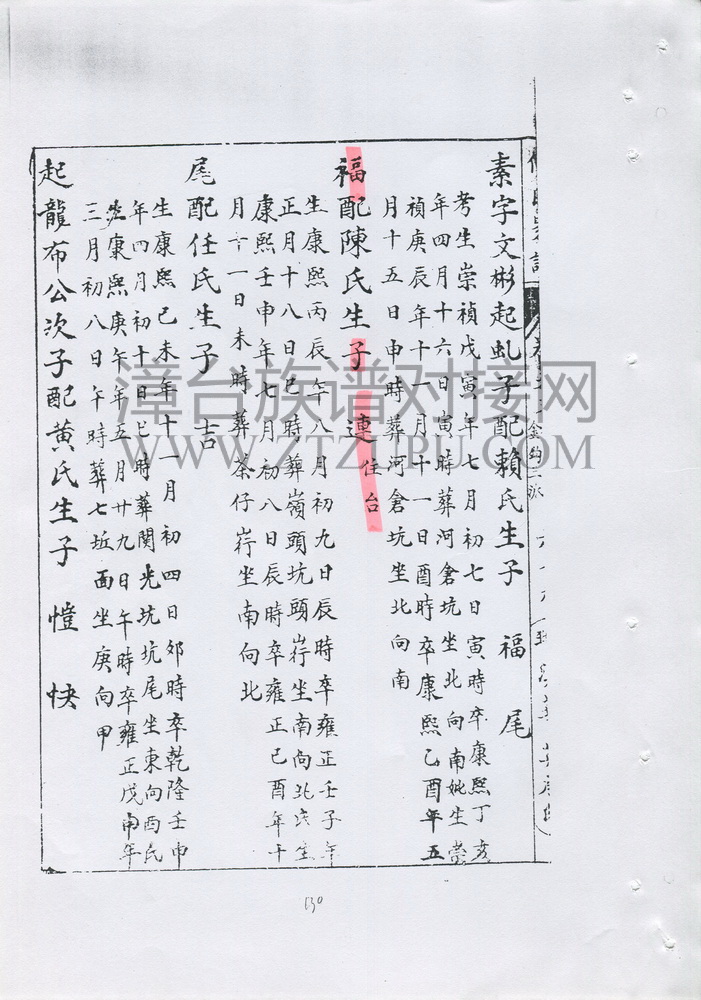 素字文彬起虬子配賴氏生子　福　尾
考生崇禎戊寅年七月初七日寅時卒康熙丁亥
年四月十六日寅時葬河倉坑坐北向南妣生崇
禎庚辰年十一月十一日酉時卒康熙乙酉年五
月十五日申時葬河倉坑坐北向南
福配陳氏生子　連住台
生康熙丙辰年八月初九日辰時卒雍正壬子年
正月十八日巳時葬嶺頭坑頭崩坐南向北氏生
康熙壬申年七月初八日辰時卒雍正己酉年十
月十一日未時葬茶仔坐南向北
尾配任氏生子　吉
生康熙己未年十一月初四日卯時卒乾隆壬申
年四月初十日巳時葬関光坑坑尾坐東向西氏
生康熙庚午年五月廿九日午時卒雍正戊申年
三月初八日午時葬七坵面坐庚向甲
起龍布公次子配黃氏生子　愷　快
金鈎三派
130
漳台族谱对接网
WWW.ZTZUPU.COM